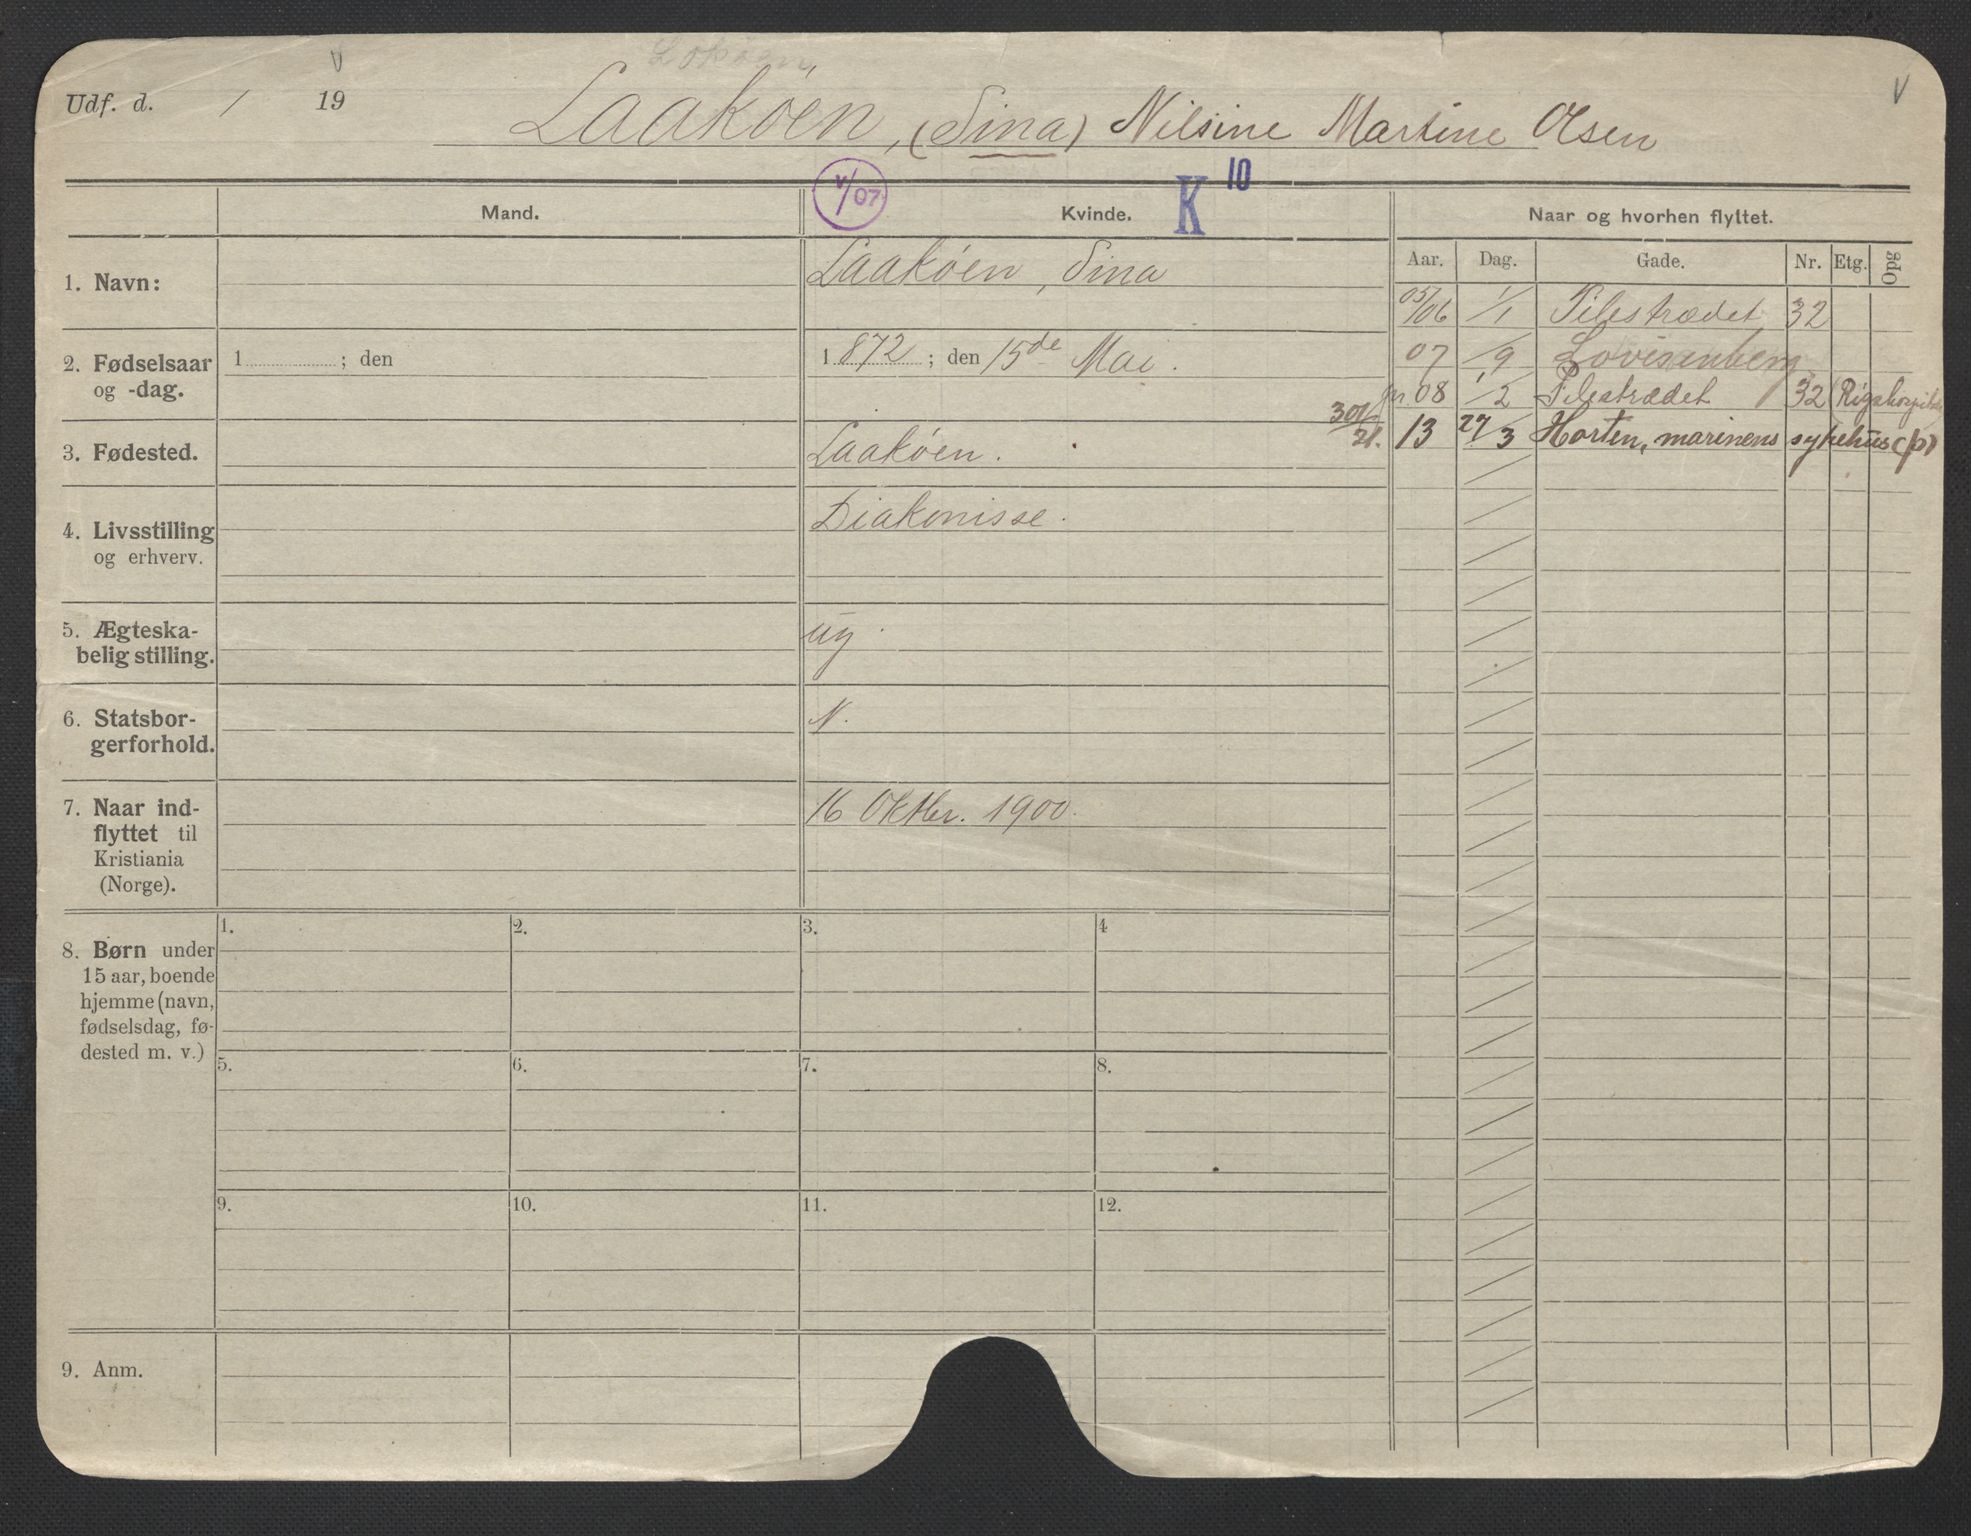 Lokøen
Udf. d. / 19
Laakøen, (Sina) Nilsine Martine Olsen
V/07
K 10
Mand.
Kvinde.
Naar og hvorhen flyttet.
Aar. Dag. Gade. Nr. Etg. Opg
1. Navn:
Laakøen, Sina
2. Fødselsaar
og -dag.
1 ; den
1872 ; den 15de Mai.
3. Fødested.
Laakøen.
4. Livsstilling
og erhverv.
Diakonisse.
5. Ægteska-
belig stilling.
ug.
6. Statsbor-
gerforhold.
N.
7. Naar ind-
flyttet til
Kristiania
(Norge).
16 Oktbr. 1900.
05/06 1/1 Pilestrædet 32
07 1/9 Lovisenberg
08 1/2 Pilestrædet 32 (Rigshospitalet
301/21. 13 27/3 Horten, marinens sykehus (p)
8. Børn under
15 aar, boende
hjemme (navn,
fødselsdag, fø-
dested m. v.)
1. 2. 3. 4
5. 6. 7. 8.
9. 10. 11. 12.
9. Anm.